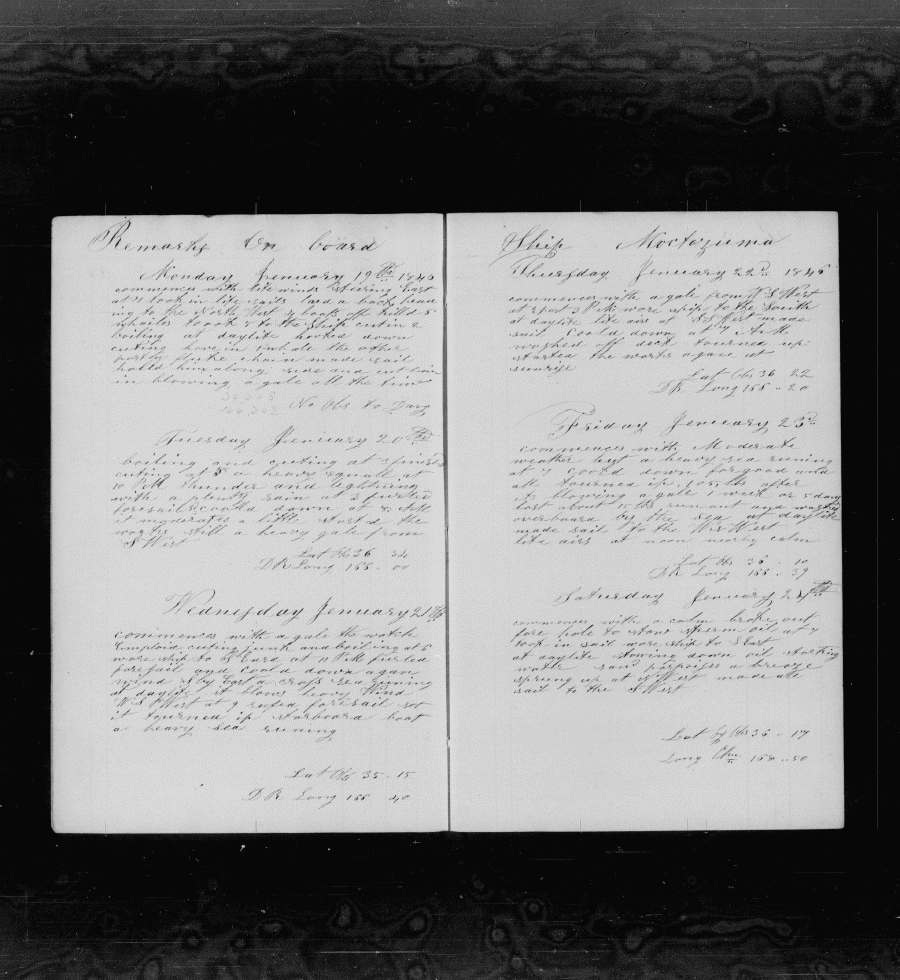 Remarks On board
Monday Jenuary 19th 1846
commences with lite winds steering East
at 7 took in lite sails laid a back head
ing to the North West 4 boats off kill'd 5
whailes took 5 to the ship cutin &
boiling at daylite hooked down
cuting hove in 1 whale the other
parted fluke chain made sail
hall'd him along side and cut him
in blowing a gale all the time
No Obs to Day
Tuesday Jenuary 20th
boiling and cuting at 3 finist
cuting at 5 a heavy squall
10 P.M. thunder and lightning
with a plenty rain at 3 furled
foresail & coold down at 8 A.M.
it moderates a little started the
works still a heavy gale from
S West
Lat Obs 36 34
D R Long 155 - 00
Wednesday Jenuary 21th
commences with a gale the watch
Emploid cuting junk and boiling at 6
wore ship to Eard. at 11 P.M. furled
foresail and coold down again
wind by East a cross sea runing
at daylite it blows heavy Wind
W S West at 9 reefed foresail set
it tourned up starboard boat
a heavy sea runing
Lat Obs 35 - 15
D R Long 155 40
Ship Moctozuma
Thursday Jenuary 22d 1846
commences with a gale from W S West
at past 3 P.M. wore ship to the South
at daylite lite airs at S S West made
sail coold down at 7 A.M.
washed off deck tourned up
started the works agane at
sunrise
Lat Obs 36 22
D R Long 155 - 20
Friday Jenuary 23d
commences with Moderate
weather but a heavy sea runing
at 7 coold down for good and
all tourned up after
its blowing a gale 1 week or 5 days
lost about 15 bbs run out and washing
overboard by the sea at daylite
made sail to the W S West
lite airs at noon nearly calm
Lat Obs 36 - 10
D R Long 155 - 39
Saturday Jenuary 24th
commences with a calm broke out
fore hole to stow sperm oil at 7
took in sail wore ship to S East
at daylite stowing down oil
porpoises a breeze
spring up at N West made all
sail to the S West
Lat by Obs 35 - 17
Long Chr 154 - 50